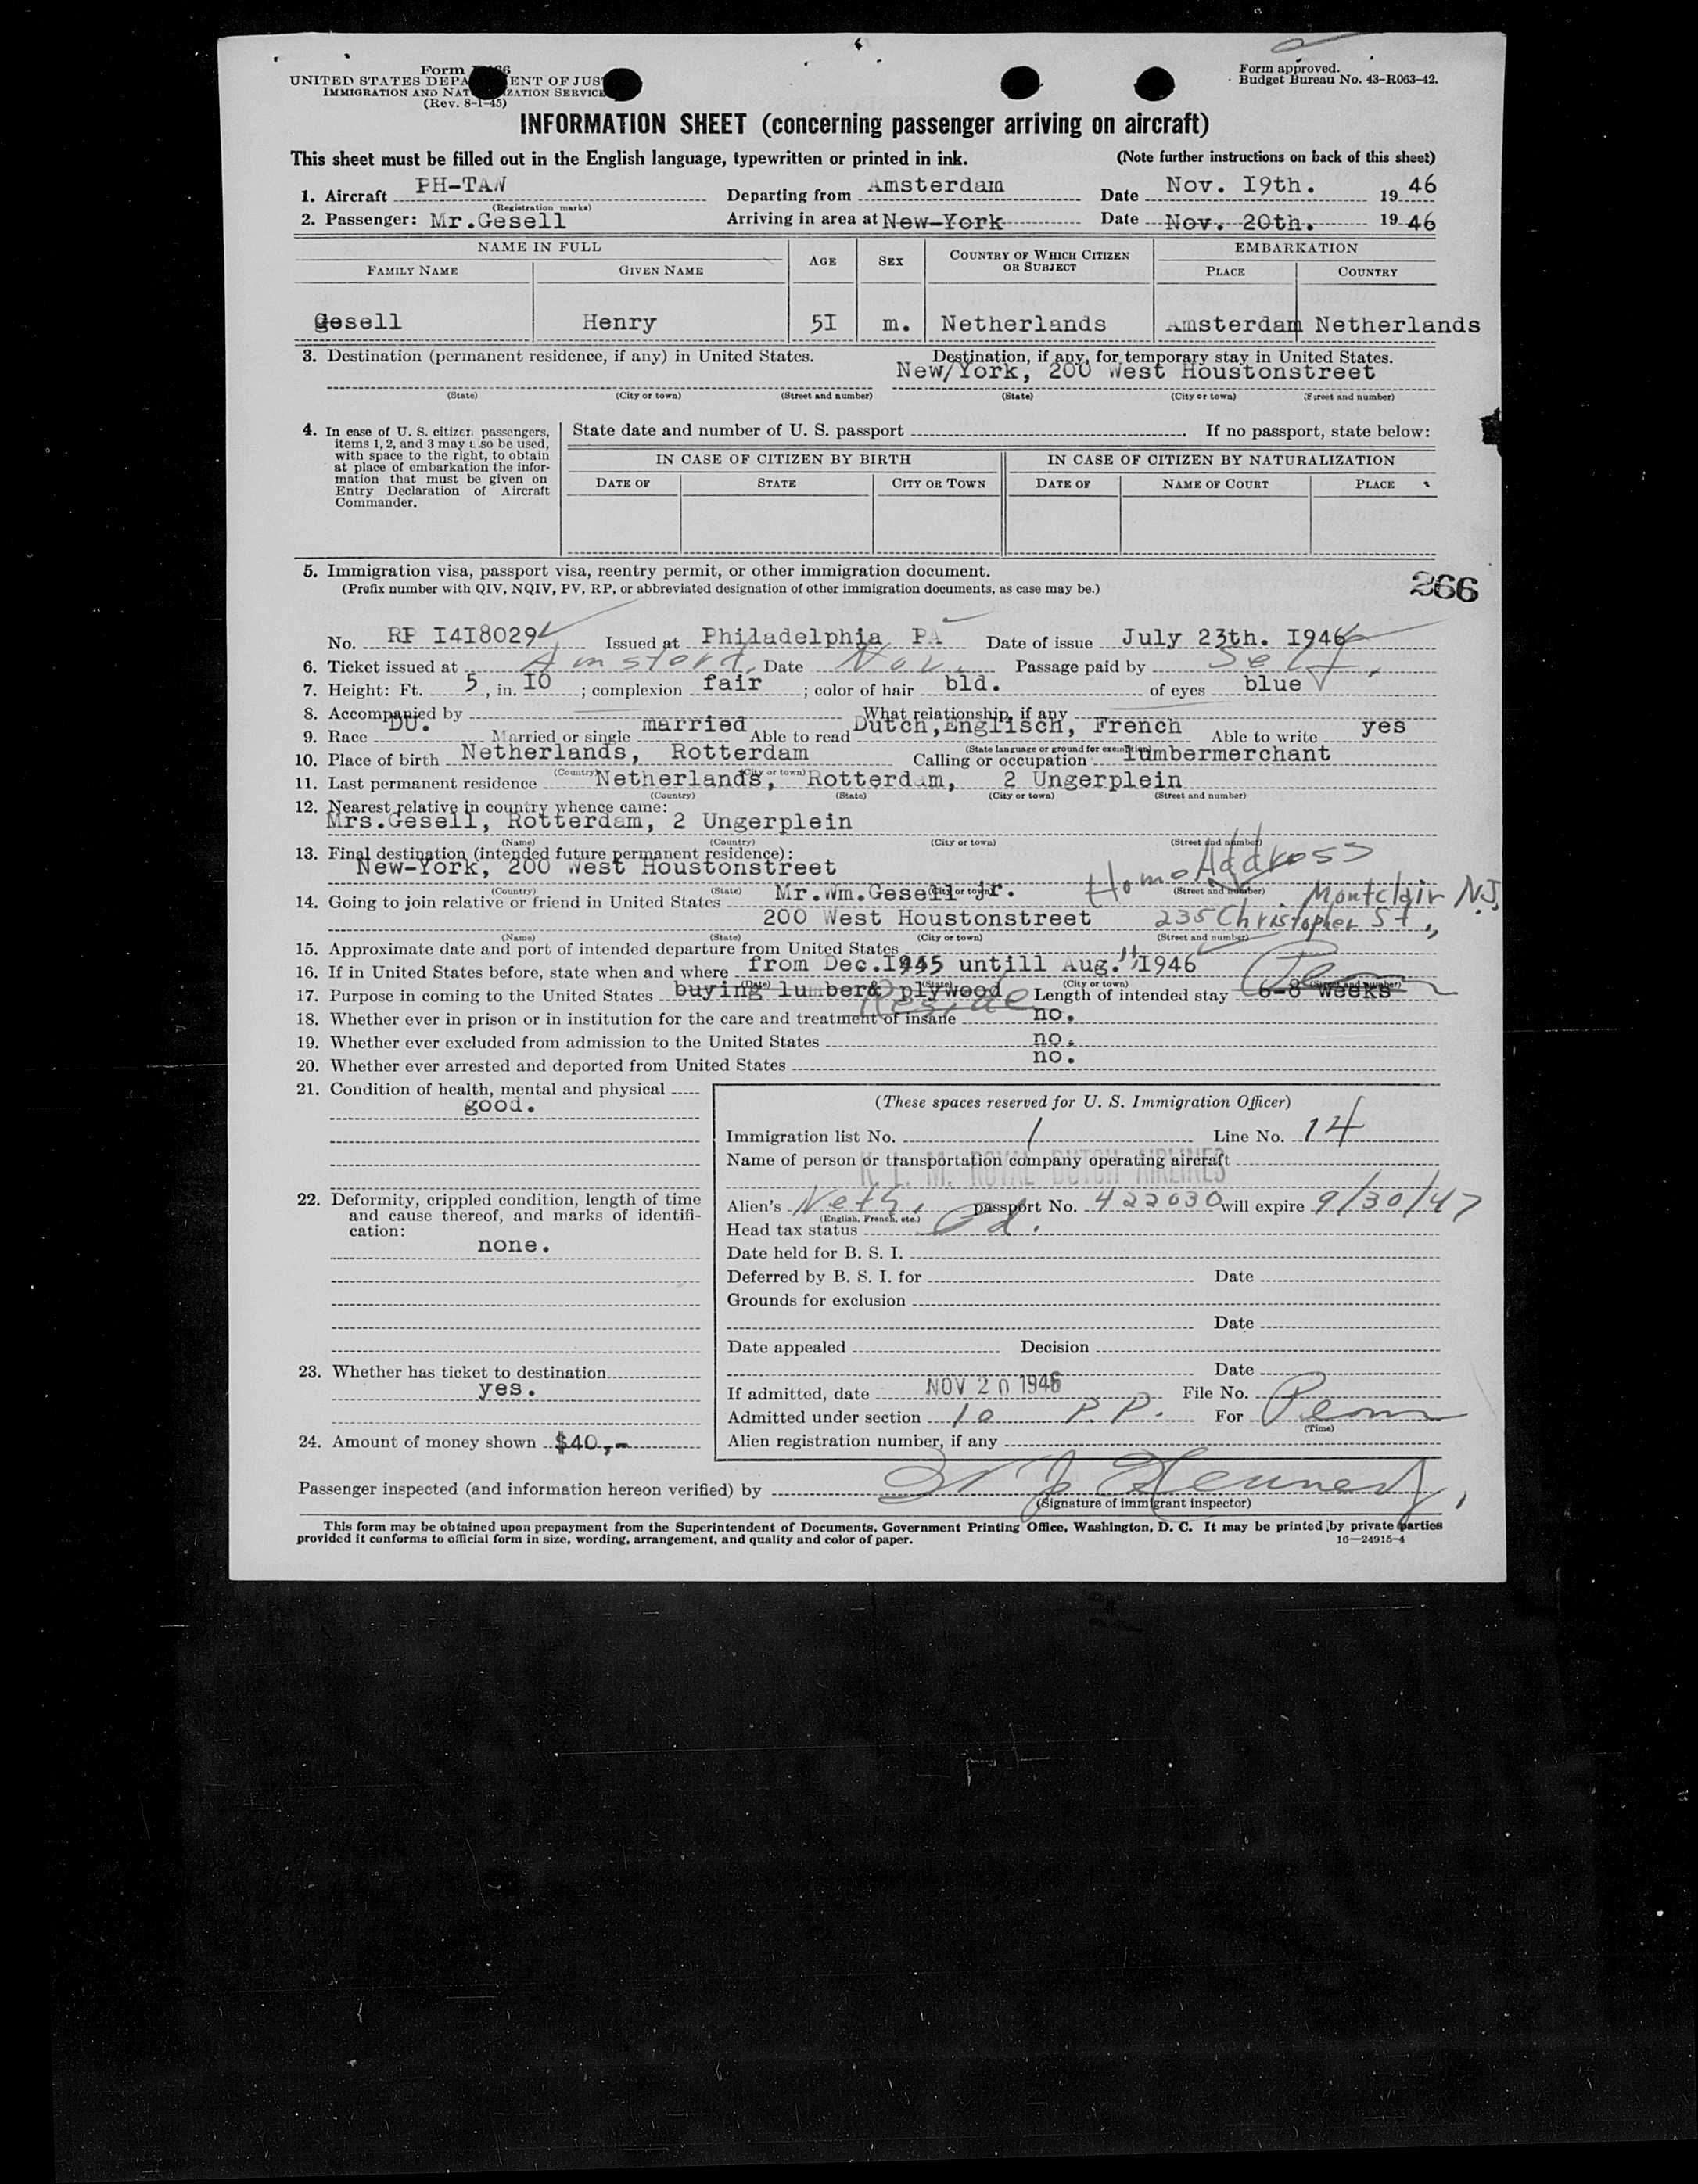 Form I-466
UNITED STATES DEPARTMENT OF JUSTICE
IMMIGRATION AND NATURALIZATION SERVICE
(Rev. 8-1-45)
Form approved.
Budget Bureau No. 43-R063-42.
INFORMATION SHEET (concerning passenger arriving on aircraft)
This sheet must be filled out in the English language, typewritten or printed in ink. (Note further instructions on back of this sheet)
1. Aircraft PH-TAW Departing from Amsterdam Date Nov. I9th. 1946
(Registration marks)
2. Passenger: Mr.Gesell Arriving in area at New-York Date Nov. 20th. 1946
NAME IN FULL AGE SEX COUNTRY OF WHICH CITIZEN OR SUBJECT EMBARKATION
FAMILY NAME GIVEN NAME PLACE COUNTRY
Gesell Henry 5I m. Netherlands Amsterdam Netherlands
3. Destination (permanent residence, if any) in United States. Destination, if any, for temporary stay in United States.
New/York, 200 West Houstonstreet
(State) (City or town) (Street and number) (State) (City or town) (Street and number)
4. In case of U. S. citizen passengers, items 1, 2, and 3 may also be used, with space to the right, to obtain at place of embarkation the information that must be given on Entry Declaration of Aircraft Commander.
State date and number of U. S. passport If no passport, state below:
IN CASE OF CITIZEN BY BIRTH IN CASE OF CITIZEN BY NATURALIZATION
DATE OF STATE CITY OR TOWN DATE OF NAME OF COURT PLACE
5. Immigration visa, passport visa, reentry permit, or other immigration document.
(Prefix number with QIV, NQIV, PV, RP, or abbreviated designation of other immigration documents, as case may be.)
266
No. RP I4I8029 Issued at Philadelphia PA Date of issue July 23th. I946
6. Ticket issued at Amsterd. Date Nov. Passage paid by Self.
7. Height: Ft. 5, in. I0; complexion fair; color of hair bld. of eyes blue
8. Accompanied by What relationship, if any
9. Race DU. Married or single married Able to read Dutch, Englisch, French Able to write yes
(State language or ground for exemption)
10. Place of birth Netherlands, Rotterdam Calling or occupation lumbermerchant
(Country) (City or town)
11. Last permanent residence Netherlands, Rotterdam, 2 Ungerplein
(Country) (State) (City or town) (Street and number)
12. Nearest relative in country whence came:
Mrs.Gesell, Rotterdam, 2 Ungerplein
(Name) (Country) (City or town) (Street and number)
13. Final destination (intended future permanent residence):
New-York, 200 West Houstonstreet
(Country) (State) (City or town) (Street and number)
Home Address
14. Going to join relative or friend in United States Mr.Wm.Gesell jr. Montclair N.J.
200 West Houstonstreet 235 Christopher St.,
(Name) (State) (City or town) (Street and number)
15. Approximate date and port of intended departure from United States
16. If in United States before, state when and where from Dec.I945 untill Aug. I946
(Date) (State) (City or town) (Street and number)
17. Purpose in coming to the United States buying lumber& plywood Length of intended stay 6-8 weeks Perm
Reside
18. Whether ever in prison or in institution for the care and treatment of insane no.
19. Whether ever excluded from admission to the United States no.
20. Whether ever arrested and deported from United States no.
21. Condition of health, mental and physical
good.
22. Deformity, crippled condition, length of time and cause thereof, and marks of identification:
none.
23. Whether has ticket to destination
yes.
24. Amount of money shown $40,-
(These spaces reserved for U. S. Immigration Officer)
Immigration list No. 1 Line No. 14
Name of person or transportation company operating aircraft
K. L. M. ROYAL DUTCH AIRLINES
Alien's Neth. passport No. 422030 will expire 9/30/47
(English, French, etc.)
Head tax status Pd.
Date held for B. S. I.
Deferred by B. S. I. for Date
Grounds for exclusion
Date
Date appealed Decision
Date
If admitted, date NOV 20 1946 File No.
Admitted under section 10 P.P. For Perm
(Time)
Alien registration number, if any
Passenger inspected (and information hereon verified) by
(Signature of immigrant inspector)
This form may be obtained upon prepayment from the Superintendent of Documents, Government Printing Office, Washington, D. C. It may be printed by private parties
provided it conforms to official form in size, wording, arrangement, and quality and color of paper. 16—24915-4